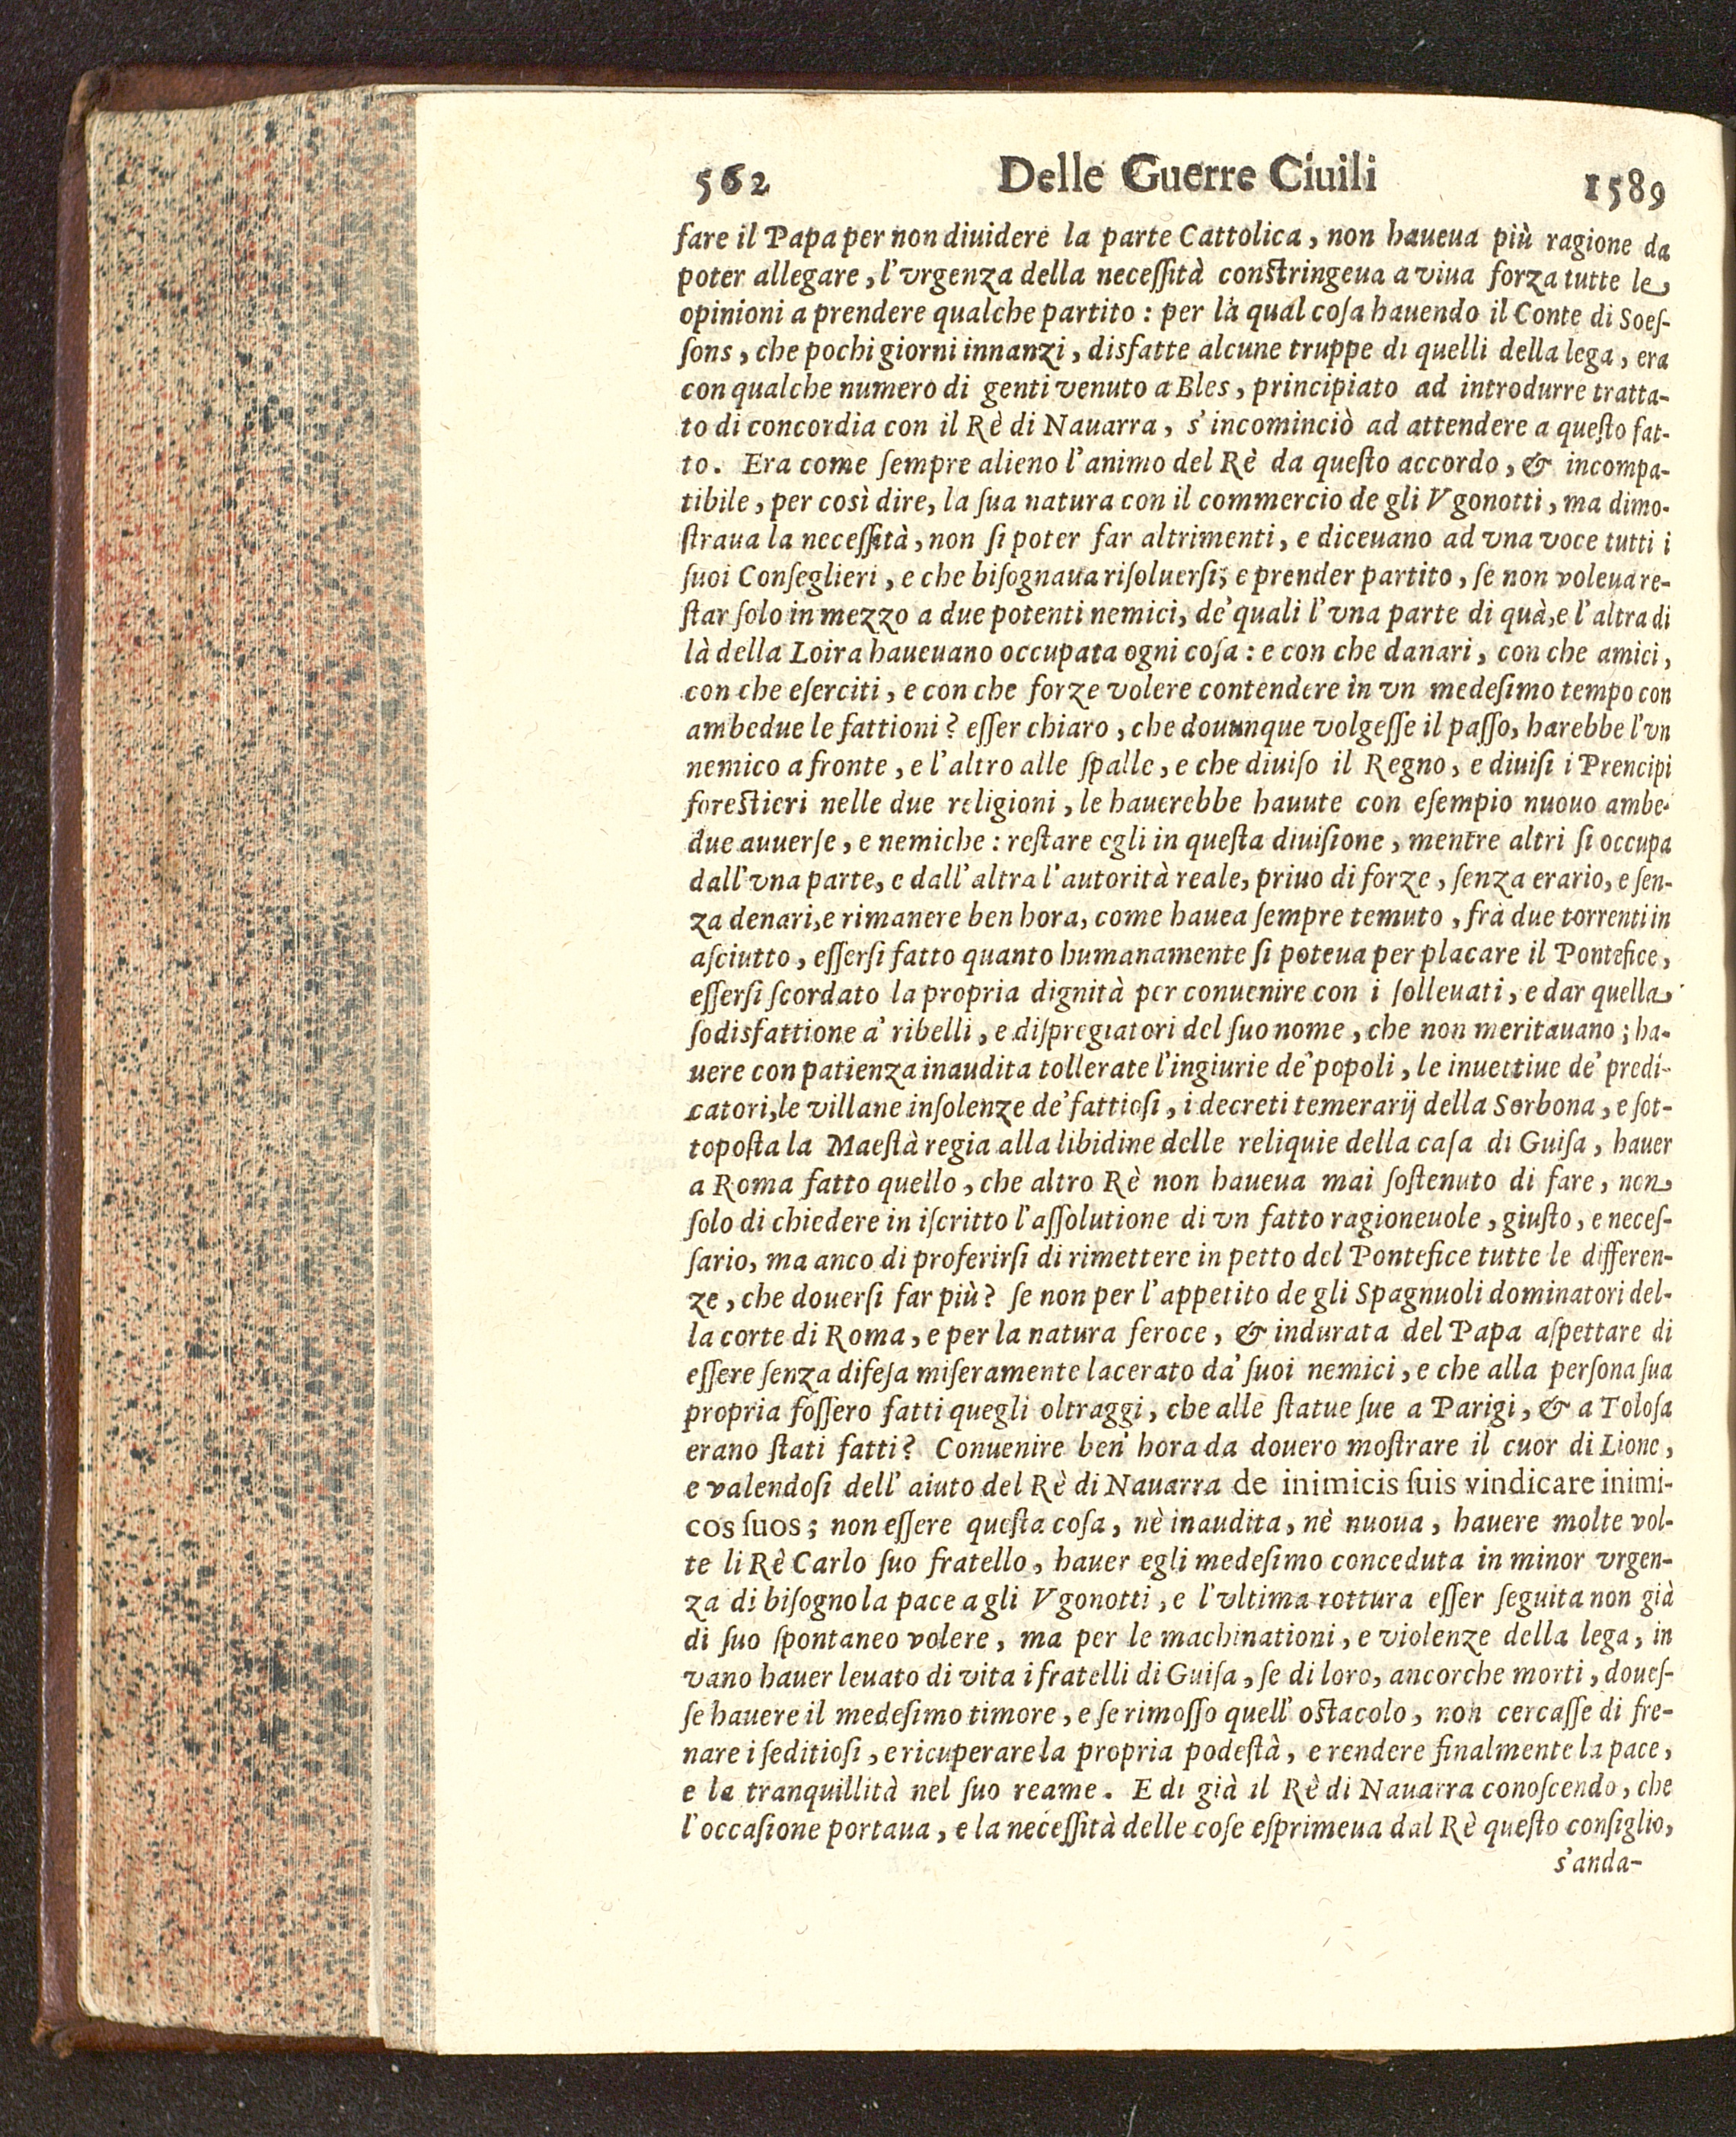 562 Delle Guerre Ciuili 1589
fare il Papa per non diuidere la parte Cattolica, non haueua più ragione da
poter allegare, l'vrgenza della neceſſità conſtringeua a viua forza tutte le
opinioni a prendere qualche partito: per la qual coſa hauendo il Conte di Soeſ-
ſons, che pochi giorni innanzi, disfatte alcune truppe di quelli della lega, era
con qualche numero di genti venuto a Bles, principiato ad introdurre tratta-
to di concordia con il Rè di Nauarra, s'incominciò ad attendere a queſto fat-
to. Era come ſempre alieno l'animo del Rè da queſto accordo, & incompa-
tibile, per così dire, la ſua natura con il commercio de gli Vgonotti, ma dimo-
ſtraua la neceſſità, non ſi poter far altrimenti, e diceuano ad vna voce tutti i
ſuoi Conſeglieri, e che biſognaua riſoluerſi, e prender partito, ſe non voleua re-
ſtar ſolo in mezzo a due potenti nemici, de' quali l'vna parte di quà, e l'altra di
là della Loira haueuano occupata ogni coſa: e con che danari, con che amici,
con che eſerciti, e con che forze volere contendere in vn medeſimo tempo con
ambedue le fattioni? eſſer chiaro, che douunque volgeſſe il paſſo, harebbe l'vn
nemico a fronte, e l'altro alle ſpalle, e che diuiſo il Regno, e diuiſi i Prencipi
foreſtieri nelle due religioni, le hauerebbe hauute con eſempio nuouo ambe-
due auuerſe, e nemiche: reſtare egli in queſta diuiſione, mentre altri ſi occupa
dall'vna parte, e dall'altra l'autorità reale, priuo di forze, ſenza erario, e ſen-
za denari, e rimanere ben hora, come hauea ſempre temuto, frà due torrenti in
aſciutto, eſſerſi fatto quanto humanamente ſi poteua per placare il Pontefice,
eſſerſi ſcordato la propria dignità per conuenire con i ſolleuati, e dar quella
ſodisfattione a' ribelli, e diſpregiatori del ſuo nome, che non meritauano; ha-
uere con patienza inaudita tollerate l'ingiurie de' popoli, le inuettiue de' predi-
catori, le villane inſolenze de' fattioſi, i decreti temerarij della Sorbona, e ſot-
topoſta la Maeſtà regia alla libidine delle reliquie della caſa di Guiſa, hauer
a Roma fatto quello, che altro Rè non haueua mai ſoſtenuto di fare, non
ſolo di chiedere in iſcritto l'aſſolutione di vn fatto ragioneuole, giuſto, e neceſ-
ſario, ma anco di proferirſi di rimettere in petto del Pontefice tutte le differen-
ze, che douerſi far più? ſe non per l'appetito de gli Spagnuoli dominatori del-
la corte di Roma, e per la natura feroce, & indurata del Papa aſpettare di
eſſere ſenza difeſa miſeramente lacerato da' ſuoi nemici, e che alla perſona ſua
propria foſſero fatti quegli oltraggi, che alle ſtatue ſue a Parigi, & a Toloſa
erano ſtati fatti? Conuenire ben' hora da douero moſtrare il cuor di Lione,
e valendoſi dell' aiuto del Rè di Nauarra de inimicis ſuis vindicare inimi-
cos ſuos; non eſſere queſta coſa, nè inaudita, nè nuoua, hauere molte vol-
te li Rè Carlo ſuo fratello, hauer egli medeſimo conceduta in minor vrgen-
za di biſogno la pace a gli Vgonotti, e l'vltima rottura eſſer ſeguita non già
di ſuo ſpontaneo volere, ma per le machinationi, e violenze della lega, in
vano hauer leuato di vita i fratelli di Guiſa, ſe di loro, ancorche morti, doueſ-
ſe hauere il medeſimo timore, e ſe rimoſſo quell' oſtacolo, non cercaſſe di fre-
nare i ſeditioſi, e ricuperare la propria podeſtà, e rendere finalmente la pace,
e la tranquillità nel ſuo reame. E di già il Rè di Nauarra conoſcendo, che
l'occaſione portaua, e la neceſſità delle coſe eſprimeua dal Rè queſto conſiglio,
s'anda-